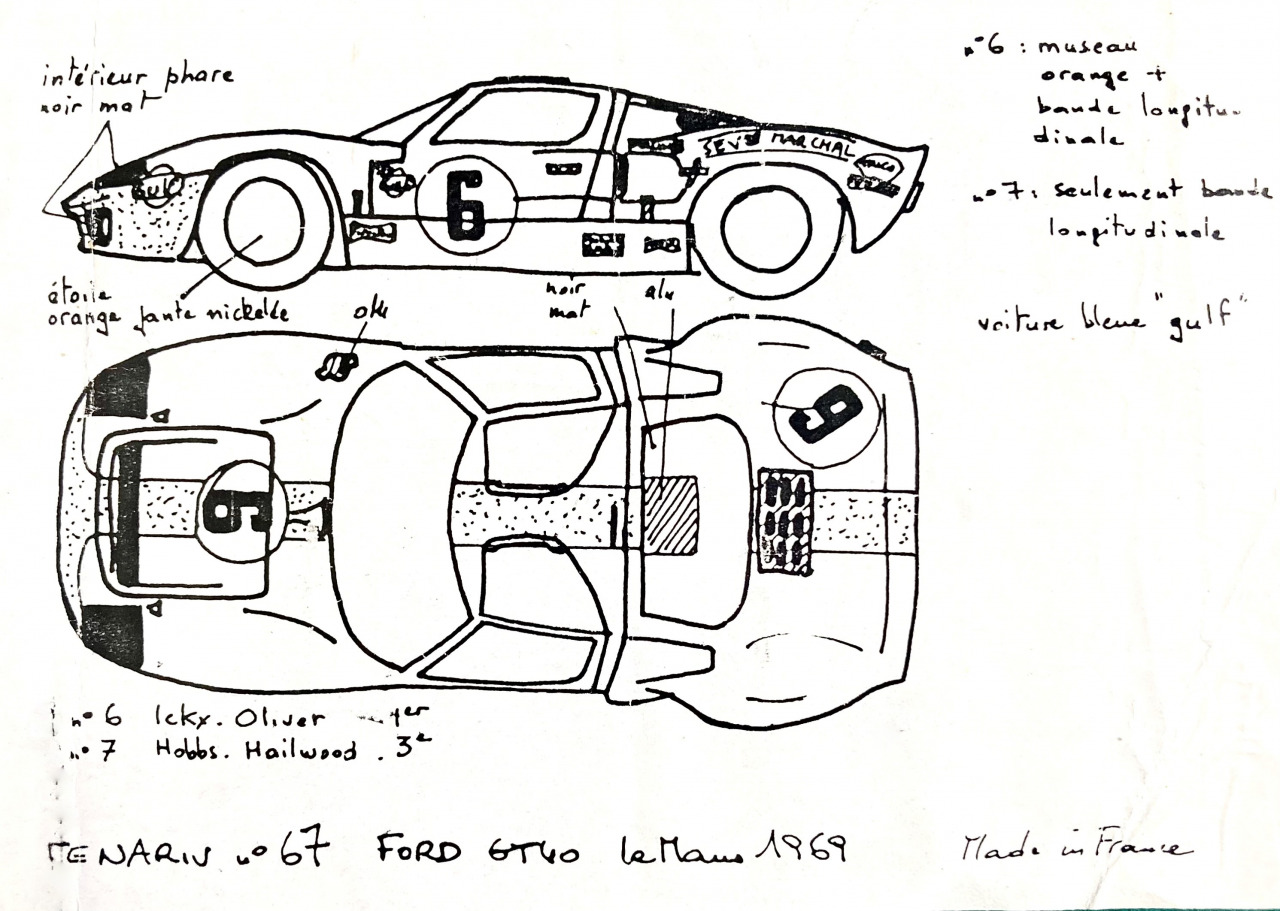 intérieur phare
noir mat
n°6 : museau
orange +
bande longitu-
dinale
n°7 : seulement bande
longitudinale
voiture bleue "gulf"
Gulf
6
SEV MARCHAL
étoile
orange jante nickelée
noir
mat
alu
6
6
n° 6 Ickx. Oliver 1er
n° 7 Hobbs. Hailwood . 3e
TENARIV n° 67 FORD GT40 le Mans 1969
Made in France